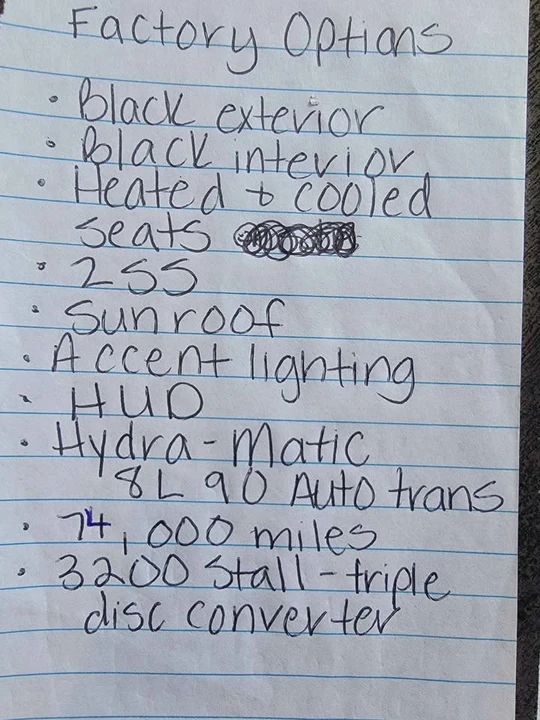 Factory Options
• Black exterior
• Black interior
• Heated + cooled
seats
• 2SS
• Sunroof
• Accent lighting
• HUD
• Hydra-Matic
8L90 Auto trans
• 74,000 miles
• 3200 Stall-triple
disc converter